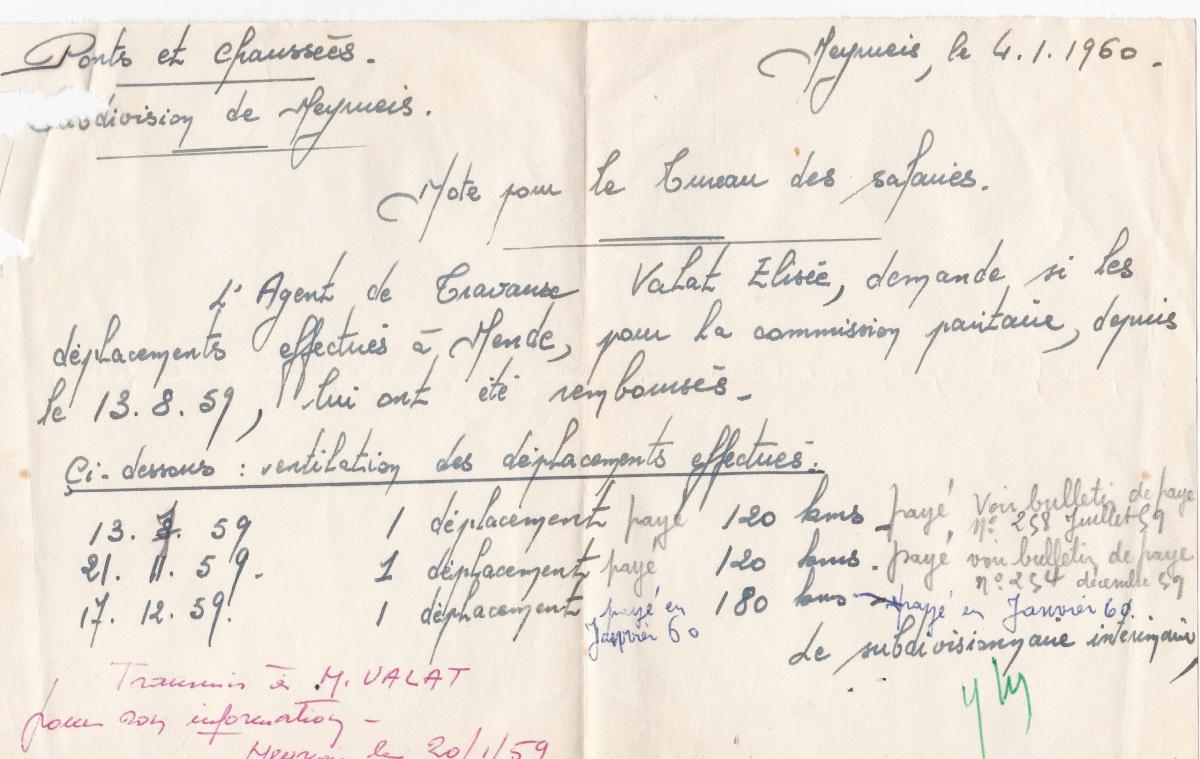 Ponts et chaussées. Meyrueis, le 4.1.1960.
Subdivision de Meyrueis.
Note pour le Bureau des salaires.
L'Agent de Travaux Valat Elisée, demande si les
déplacements effectués à Mende, pour la commission paritaire, depuis
le 13.8.59, lui ont été remboursés.
Çi-dessous : ventilation des déplacements effectués.
13. 7. 59 1 déplacement payé 120 kms payé Voir bulletin de paye
n° 258 Juillet 59
21. 11. 59. 1 déplacement payé 120 kms. payé voir bulletin de paye
n° 254 décembre 59
17. 12. 59. 1 déplacement payé en Janvier 60 180 kms payé en Janvier 60.
Le subdivisionnaire intérimaire,
Transmis à M. VALAT
pour son information -
le 20/1/59